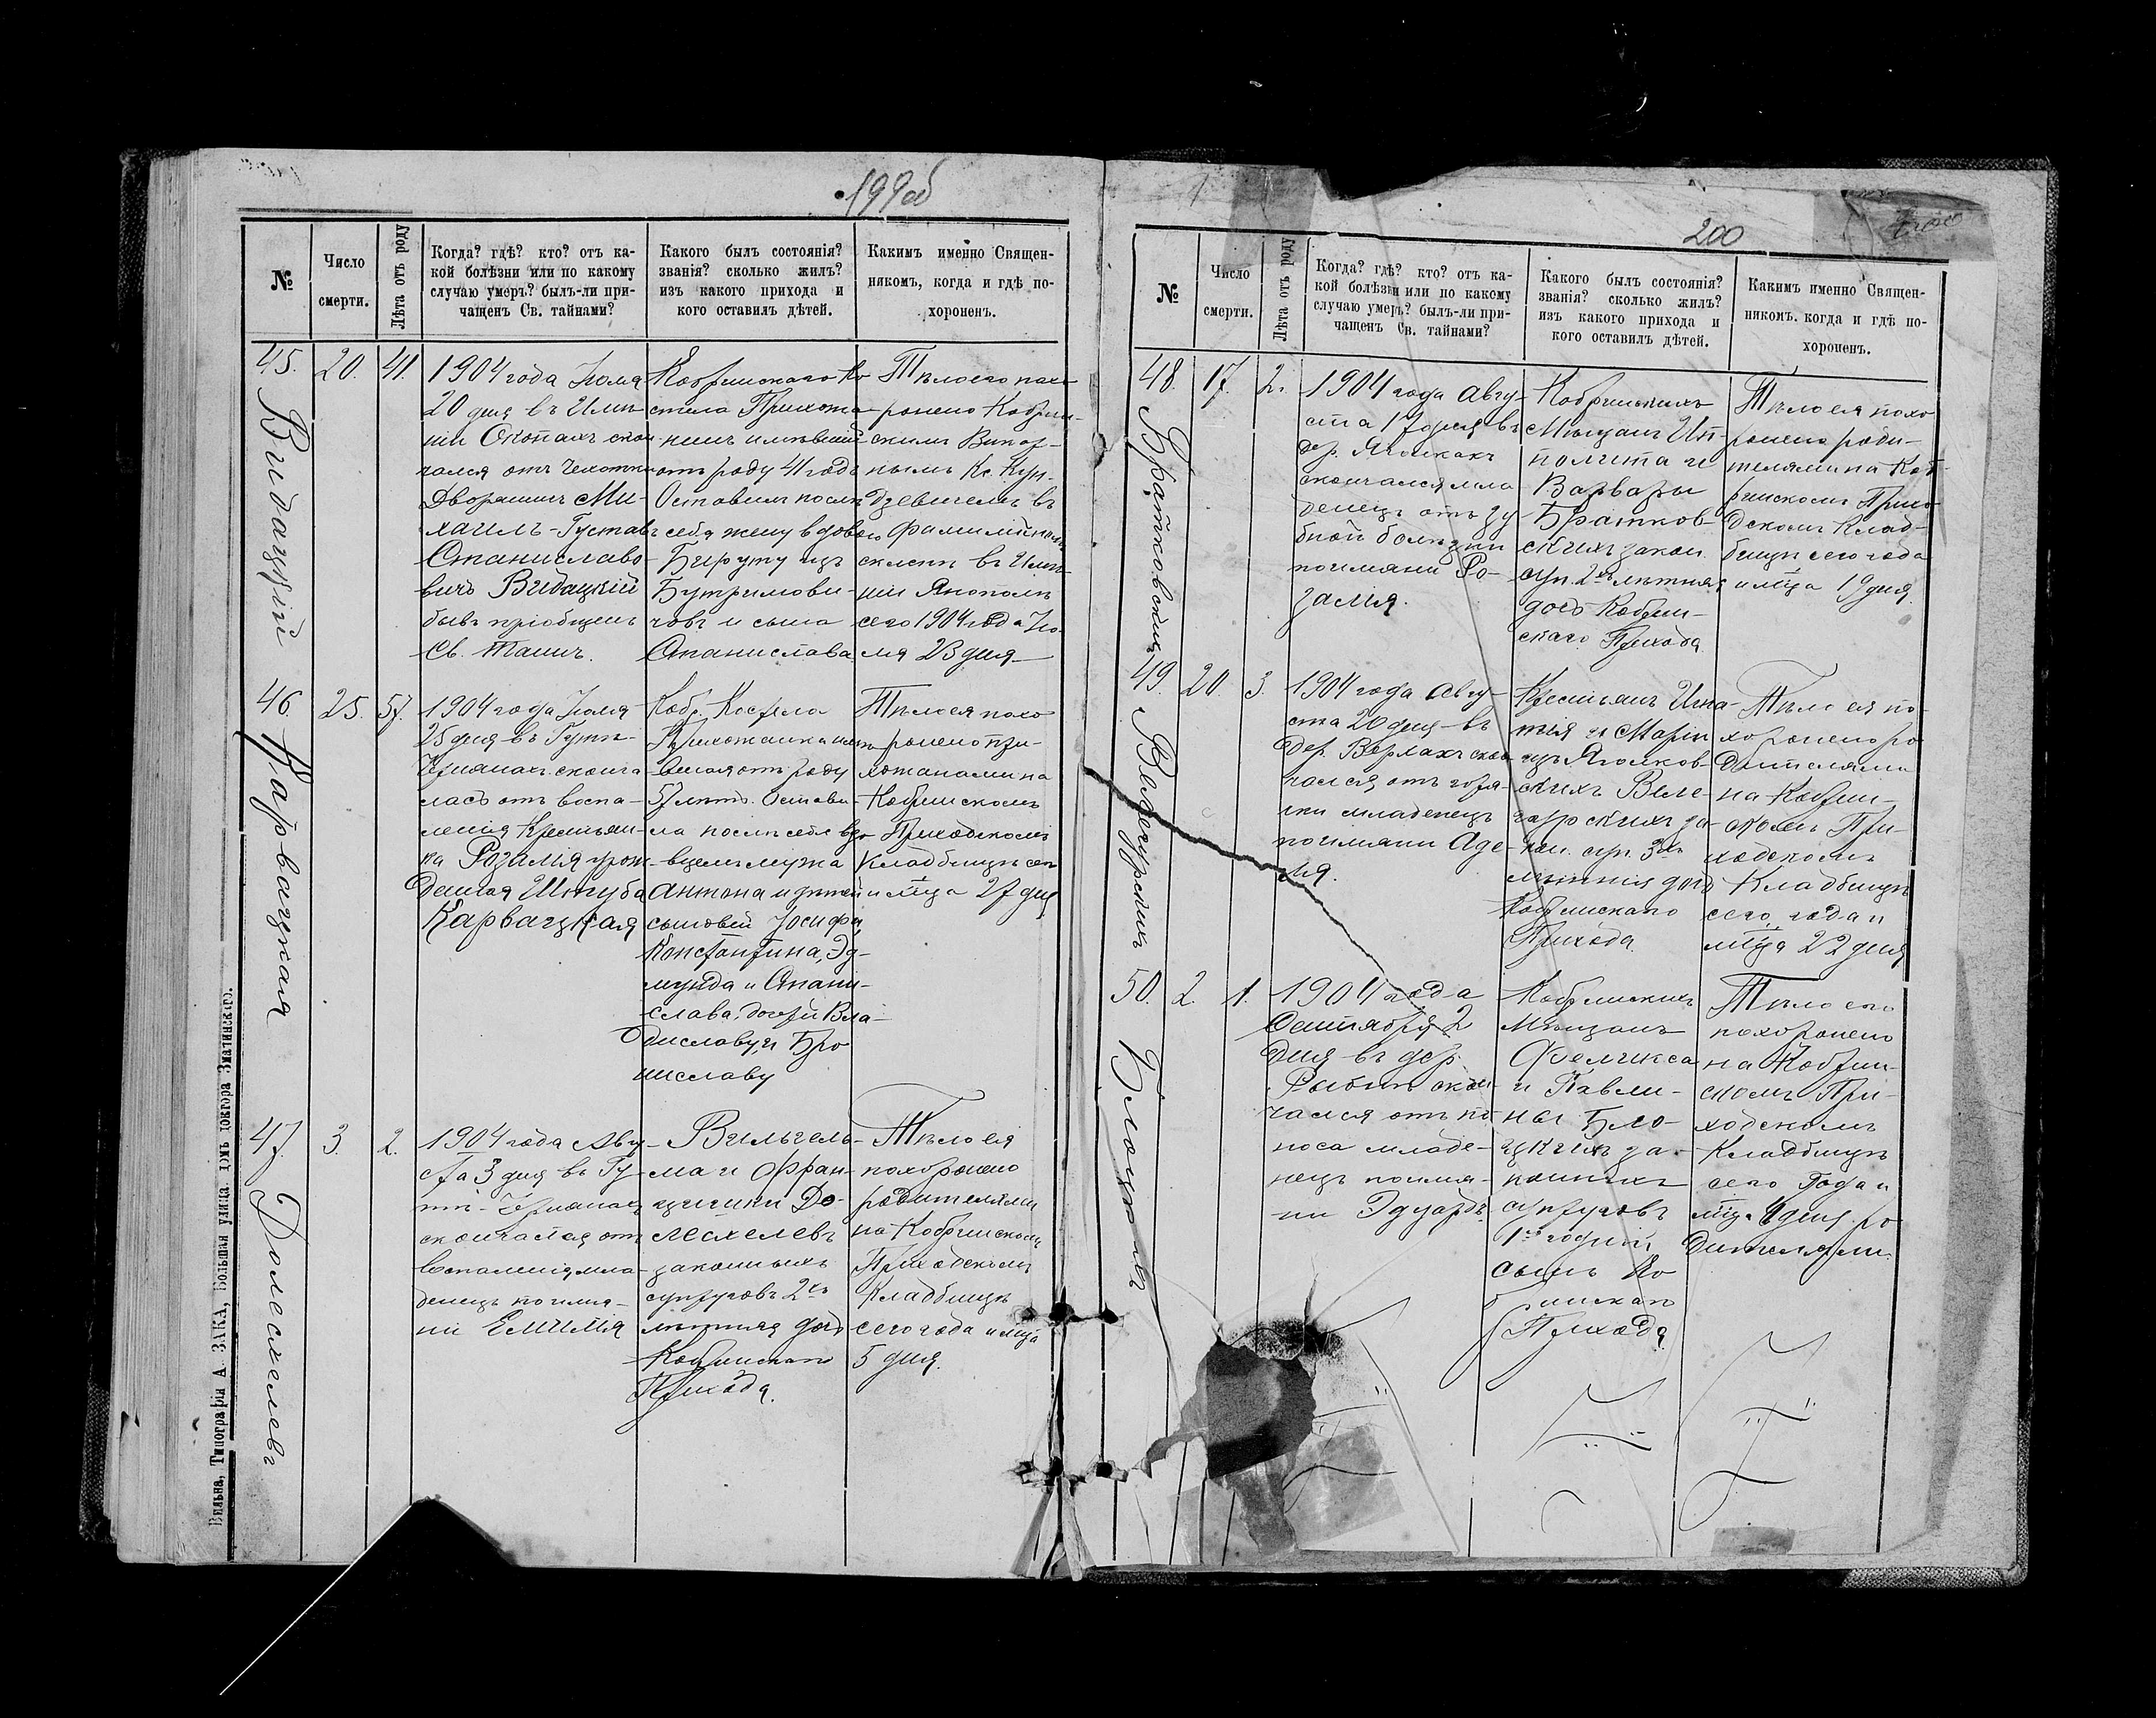 199об
№
Число
смерти.
Лѣта отъ роду
Когда? гдѣ? кто? отъ ка-
кой болѣзни или по какому
случаю умеръ? былъ-ли при-
чащенъ Св. тайнами?
Какого былъ состоянія?
званія? сколько жилъ?
изъ какого прихода и
кого оставилъ дѣтей.
Какимъ именно Священ-
никомъ, когда и гдѣ по-
хороненъ.
45.
Видацкій
20.
41.
1904 года Іюля
20 дня въ Имѣ-
ніи Окопахъ скон
чался отъ чахотки
Дворянинъ Ми-
хаилъ-Густавъ
Станиславо-
вичъ Видацкій
бывъ пріобщенъ
Св. Таинъ.
Кобринскаго Ко
стела Прихожа
нинъ имѣвшій
отъ роду 41 годъ
Оставилъ послѣ
себя жену вдову
Бируту изъ
Бутримови-
човъ и сына
Станислава
Тѣло его похо
ронено Кобрин-
скимъ Викар-
нымъ Кс. Кун-
дзевичемъ въ
фамилійномъ
склепѣ въ Имѣ-
ніи Янополь
сего 1904 года Ію-
ля 23 дня
46.
Карвацкая
25.
57.
1904 года Іюля
25 дня въ Гутѣ-
Чернянахъ сконча
лась отъ воспа-
ленія Крестьян-
ка Розалія урож
денная Штуба
Карвацкая
Кобр. Костела
Прихожанка имѣ
вшая отъ роду
57 лѣтъ. Остави-
ла послѣ себя вдо-
вцемъ мужа
Антона и дѣтей
сыновей Іосифа,
Константина, Эд-
мунда и Стани-
слава, дочерй Вла-
диславу, и Бро
ниславу
Тѣло ея похо
ронено при-
хожанами на
Кобринскомъ
Приходскомъ
Кладбищѣ сего
и мѣца 27 дня
47.
Долесхелевъ
3.
2.
1904 года Авгу-
ста 3 дня въ Гу-
тѣ-Чернянахъ
скончалая отъ
воспаленія мла-
денецъ по имя-
ни Емилія
Вильгель-
ма и Фран-
цишки До-
лесхелевъ
законныхъ
супруговъ 2хъ
лѣтняя дочь
Кобринскаго
Прихода.
Тѣло ея
похоронено
родителями
на Кобринскомъ
Приходскомъ
Кладбищѣ
сего года и мѣца
5 дня.
Вильна, Типографія А. ЗАКА, Большая улица. домъ доктора Зматинскаго.
200
№
Число
смерти.
Лѣта отъ роду
Когда? гдѣ? кто? отъ ка-
кой болѣзни или по какому
случаю умеръ? былъ-ли при-
чащенъ Св. тайнами?
Какого былъ состоянія?
званія? сколько жилъ?
изъ какого прихода и
кого оставилъ дѣтей.
Какимъ именно Священ-
никомъ. когда и гдѣ по-
хороненъ.
48.
Братковскихъ
17.
2.
1904 года Авгу-
ста 17 дня въ
дер. Яголкахъ
скончался мла
денецъ отъ зу
бной болѣзни
по имяни Ро-
залія.
Кобринскихъ
Мѣщанъ Ип-
полита и
Варвары
Братков-
скихъ закон.
суп. 2хъ лѣтняя
дочь Кобрин-
скаго Прихода
Тѣло ея похо
ронено роди-
телями на Коб-
ринскомъ Прихо
дскомъ Клад-
бищѣ сего года
и мѣца 19 дня
49.
Велегурскихъ
20.
3.
1904 года Авгу-
ста 20 дня въ
дер. Верлахъ скон
чался отъ горя-
чки младенецъ
по имяни Аде-
ля.
Крестьянъ Игна-
тія и Маріи
изъ Яголков-
скихъ Веле-
гурскихъ за-
кон. суп. 3хъ
лѣтняя дочь
Кобринскаго
Прихода
Тѣло ея по-
хоронено ро
дителями
на Кобрин-
скомъ При-
ходскомъ
Кладбищѣ
сего года и
мѣца 22 дня
50.
Блоцкихъ
2.
1.
1904 года
Сентября 2
дня въ дер.
Рыбнѣ скон
чался отъ по
носа младе-
нецъ по имя-
ни Эдуардъ.
Кобринскихъ
Мѣщанъ
Феликса
и Павли-
ны Бло-
цкихъ за-
конныхъ
супруговъ
1но годній
сынъ Ко
бринскаго
Прихода
Тѣло его
похоронено
на Кобрин-
скомъ При-
ходскомъ
Кладбищѣ
сего года и
мѣца 4 дня ро
дителями.